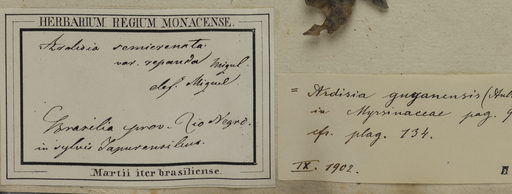 HERBARIUM REGIUM MONACENSE.
Ardisia semicrenata
var. repanda Miquel.
def. Miquel
Brasilia prov. Rio Negro.
in sylvis Japurensibus.
Martii iter brasiliense.
= Ardisia guyanensis (Aubl
in Myrsinaceae pag. 9
cfr. plag. 134.
IX. 1902.